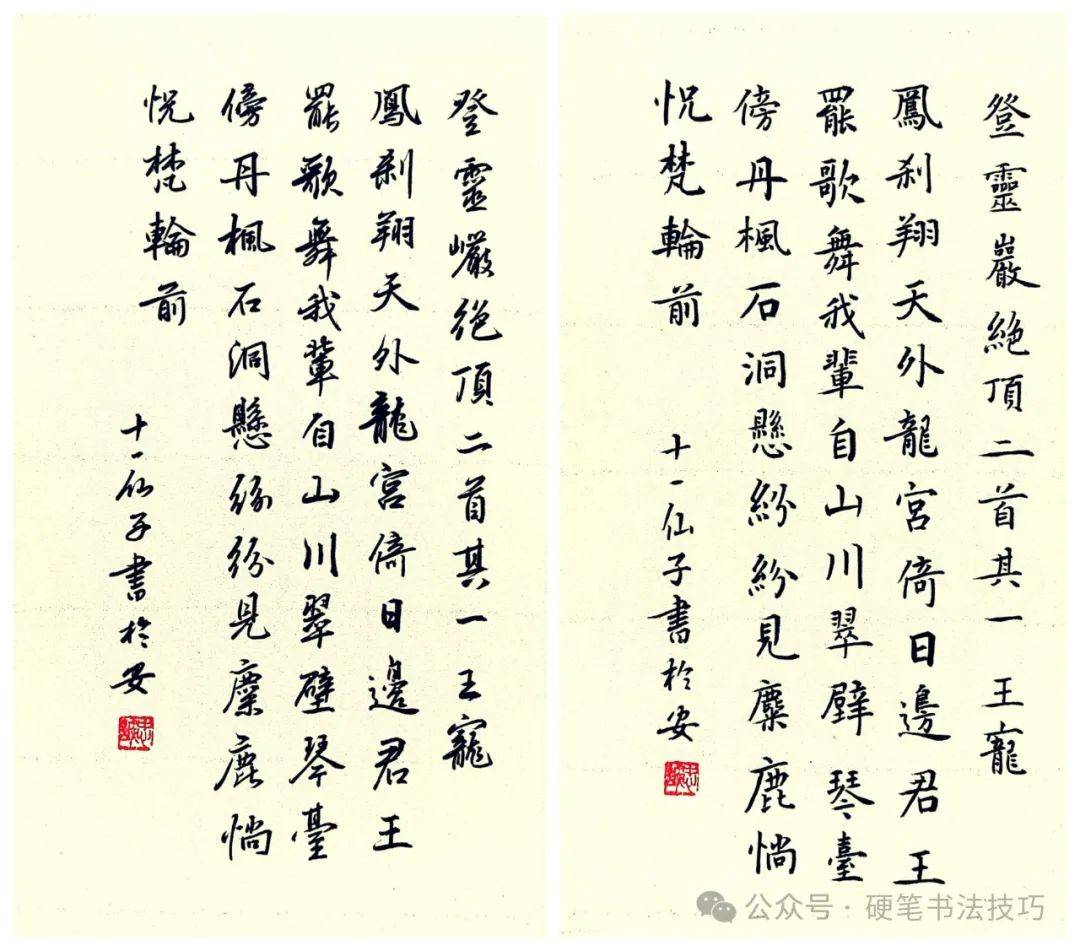 登靈巖絕頂二首其一王寵
鳳刹翔天外龍宮倚日邊君王
罷歌舞我輩自山川翠壁琴臺
傍丹楓石洞懸紛紛見麋鹿惝
怳梵輪前
十一仙子書於安
登靈巖絕頂二首其一王寵
鳳刹翔天外龍宮倚日邊君王
罷歌舞我輩自山川翠壁琴臺
傍丹楓石洞懸紛紛見麋鹿惝
怳梵輪前
十一仙子書於安
公众号·硬笔书法技巧